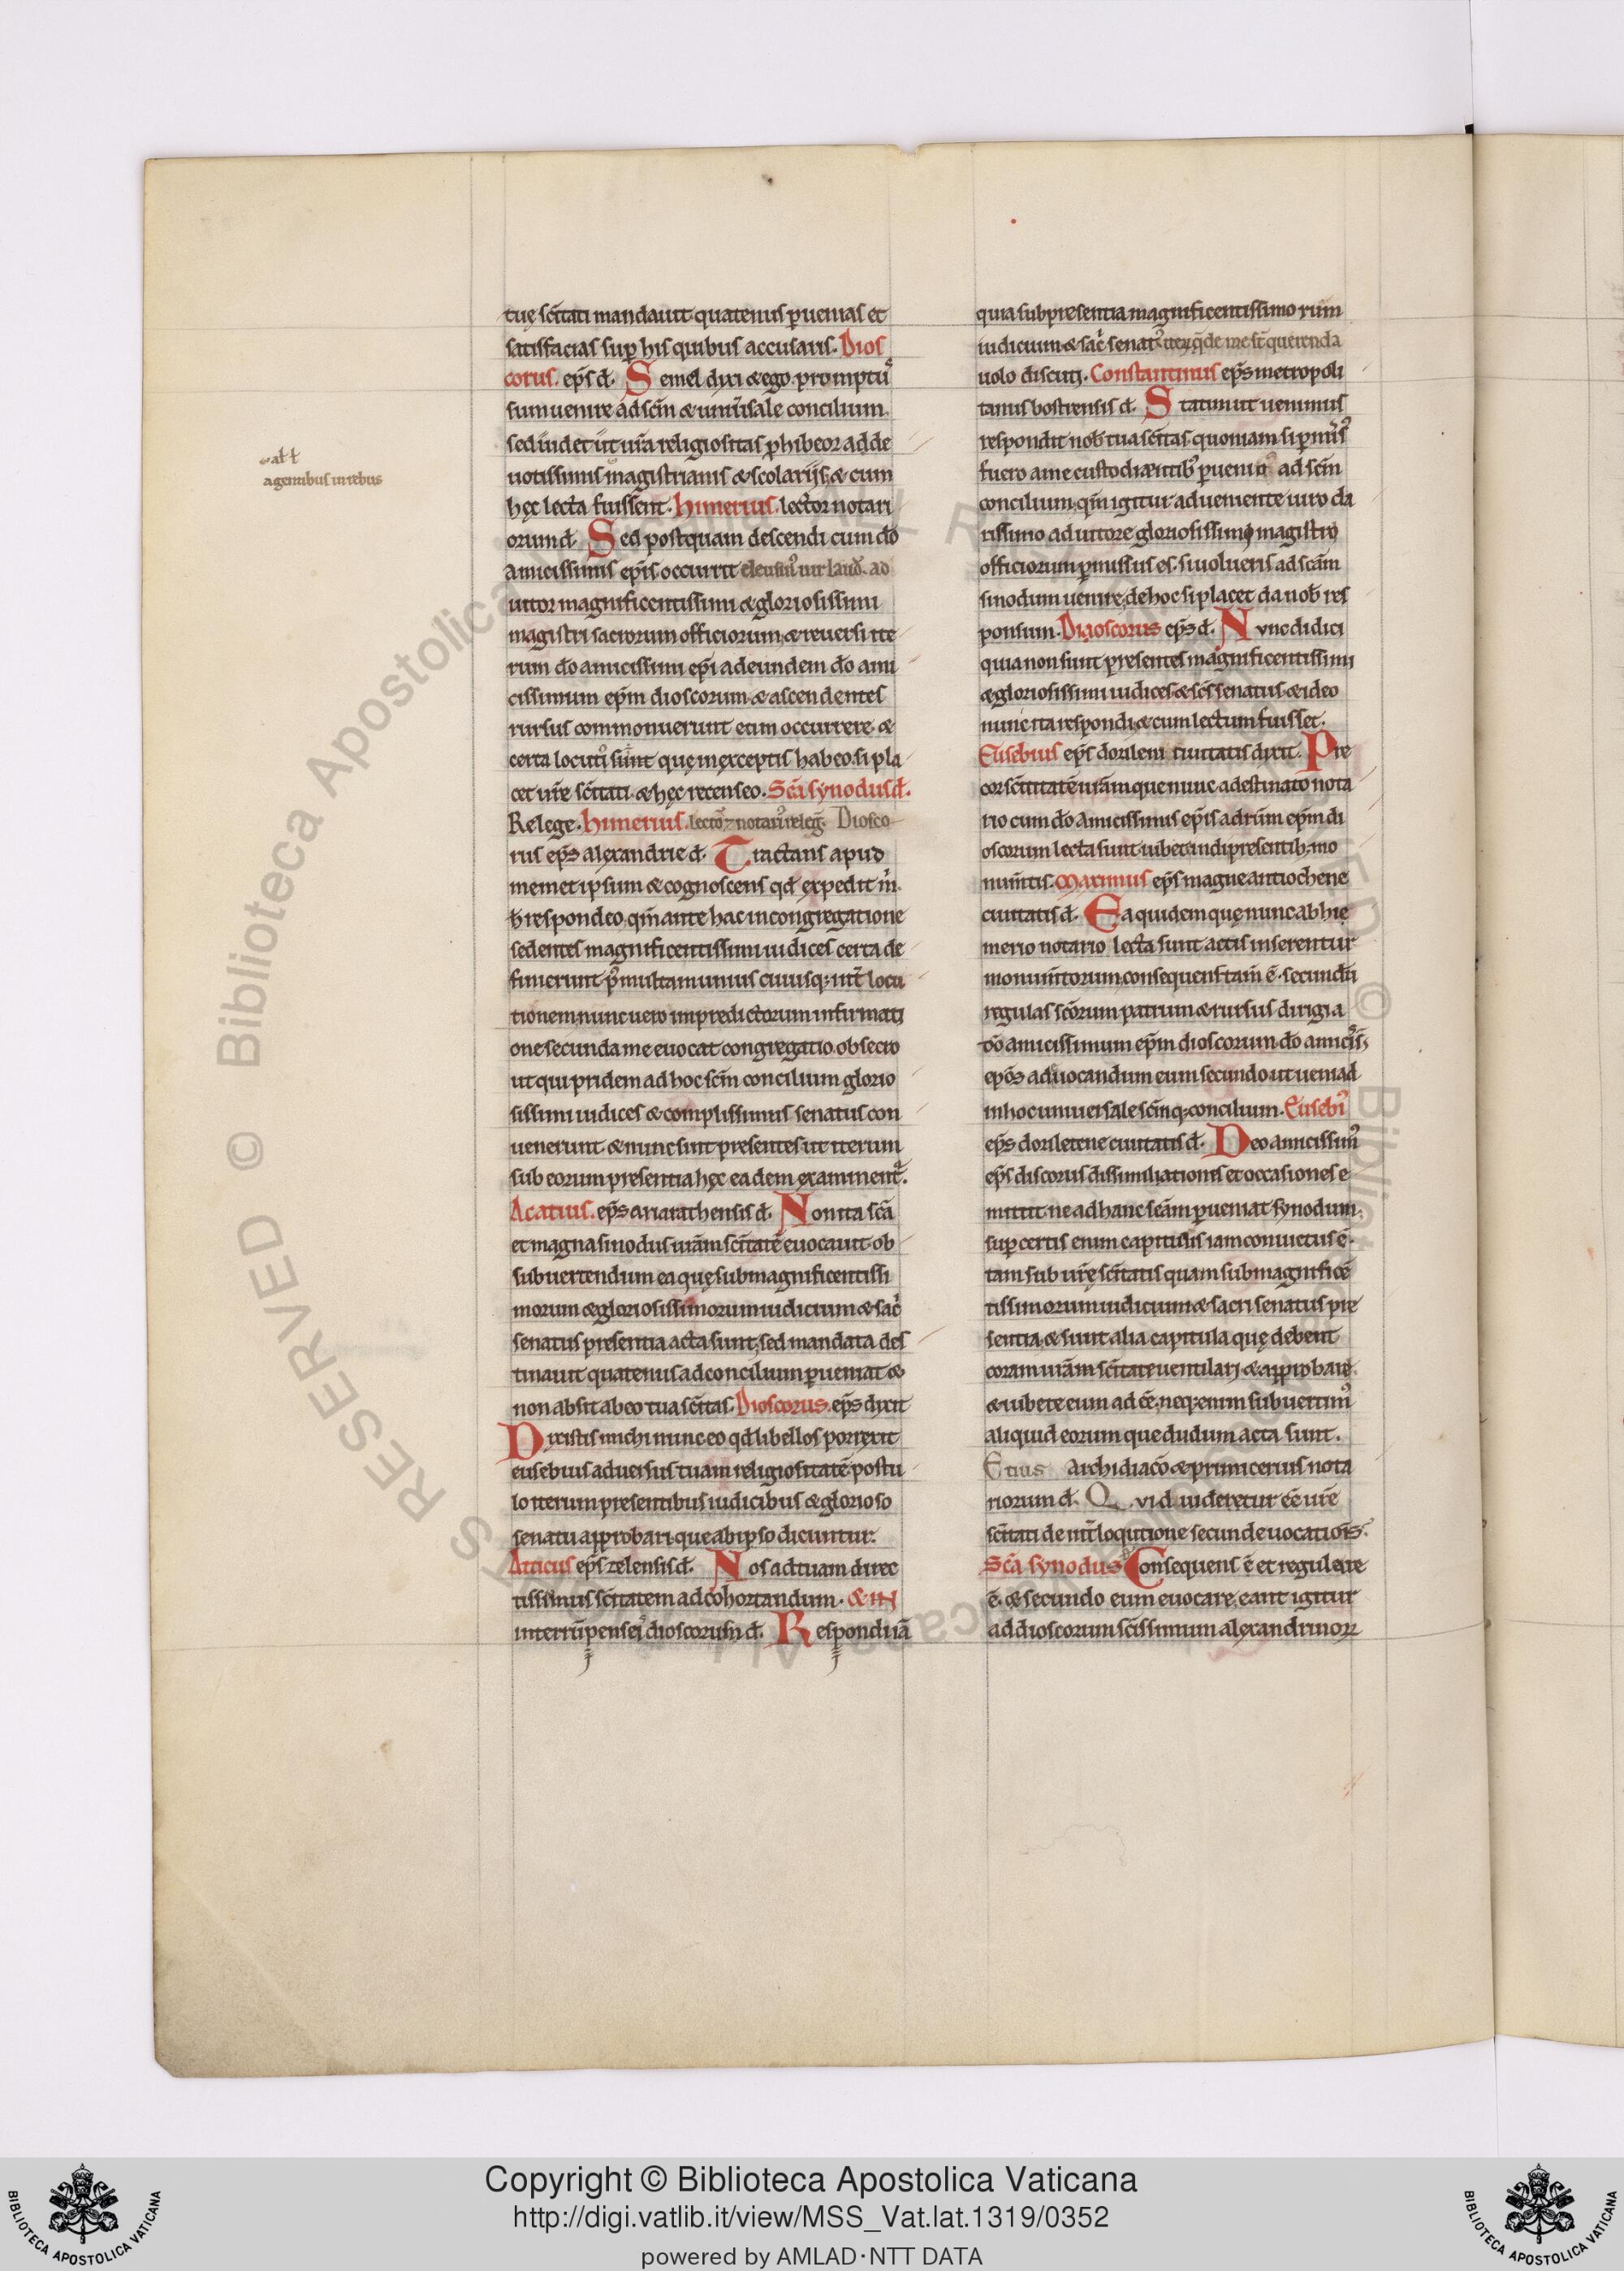 tuę sc̄itati mandauit quatenus ꝑuenias et
satisfacias suꝑ his quibus accusaris. Dios
corus. ep̄s d̄. Semel dixi & ego promptu
sum uenire ad sc̄m & uniu͛sale concilium
sed uidet ut ur̄a religiositas ꝓhibeor a d̄e
uotissimis magistrianis & scolarijs, & cum
hęc lecta fuissent. himerius. lector notari
orum d̄. Sed postquam descendi cum do
amicissimis ep̄is. occurrit eleusini᾽ uir laud̄. ad
iutor magnificentissimi & gloriosissimi
magistri sacrorum officiorum, & reuersi ite
rum do amicissimi ep̄i ad eundem do ami
cissimum ep̄m dioscorum & ascendentes
rursus commonuerunt eum occurrere. &
certa locuti sunt que in exceptis habeo. si pla
cet ur̄e sc̄itati. & hęc recenseo. Sc̄a synodus d̄.
Relege. himerius. lector & notari᾽ releḡ. Diosco
rus ep̄s alexandrie d̄. Tractans apud
memet ipsum & cognoscens qd̄ expedit m̄.
h̄ respondeo, qm̄ ante hac in congregatione
sedentes magnificentissimi iudices certa de
finierunt ꝓ multam unius cuiusq; int̄locu
tionem, nunc uero in predictorum infirmati
one secunda me euocat congregatio. obsecro
ut qui pridem ad hoc sc̄m concilium glorio
sissimi iudices & complissimus senatus con
uenerunt & nunc sint presentes ut iterum
sub eorum presentia hęc eadem examinent᾽.
Acatius. ep̄s ariarathensis d̄. Non ita sc̄a
et magna sinodus ur̄am sc̄itatē euocauit ob
subuertendum ea quę sub magnificentissi
morum & gloriosissimorum iudicium & sac̄
senatus presentia acta sunt, sed mandata des
tinauit quatenus ad concilium ꝑueniat &
non absit ab eo tua sc̄itas. Dioscorus. ep̄s dixit
Dixistis michi nunc eo qd̄ libellos porrexit
eusebius aduersus tuam religiositatē. postu
lo iterum presentibus iudicibus & glorioso
senatu approbari que ab ipso dicuntur.
Atticus ep̄s zelensis d̄. Nos ad tuam direc
tissimus sc̄itatem ad cohortandum. & in
interrūpens ei᾽ dioscorum d̄. Respondi iā
al̄t
agentibus in rebus
quia sub presentia magnificentissimorum
iudicium & sac̄ senat᾽ iterꝫ q̄ de me st̄ querenda
uolo discuti. Constantinus ep̄s metropoli
tanus bostrensis d̄. Statim ut uenimus
respondit nob̄ tua sc̄itas. quoniam si ꝑmis᾽
fuero a me custodientib᾽ ꝑuenio ad sc̄m
concilium, qm̄ igitur adueniente uiro cla
rissimo adiutore gloriosissimo magistro
officiorum ꝑmissus es. si uolueris ad sc̄am
sinodum uenire, de hoc si placet da nob̄ res
ponsum. Diaoscorus ep̄s d̄. Nvnc didici
quia non sunt presentes magnificentissimi
& gloriosissimi iudices & sc̄s senatus & ideo
nunc ita respondi, & cum lectum fuisset.
Eusebius ep̄s dorileni ciuitatis dixit. Pre
cor sc̄itatē ur̄am que nunc a destinato nota
rio cum do amicissimis ep̄is ad r̄um ep̄m di
oscorum lecta sunt iubete indi presentib; mo
numtis. Maximus ep̄s magne antiochene
ciuitatis d̄. Ea quidem quę nunc ab hie
merio notario lecta sunt actis inserentur
monumtorum, consequens tam̄ ē. secundū
regulas sc̄orum patrum & rursus dirigi a
do amicissimum ep̄m dioscorum. do amicis
ep̄os aduocandum eum secundo ut ueniad
in hoc uniuersale sc̄mq; concilium. Eusebi᾽
ep̄s doriletene ciuitatis d̄. Deo amicissim᾽
ep̄s discorus dissimilationes et occasiones e
mittit ne ad hanc sc̄am ꝑueniat synodum,
suꝑ certis enim capitulis iam conuictus ē.
tam sub ur̄ę sc̄itatis quam sub magnificē
tissimorum iudicium & sacri senatus pre
sentia, & sunt alia capitula quę debent
coram ur̄am sc̄itate uentilari & approbari.
& iubete eum adcē, neq; enim subuertim᾽
aliquid eorum que dudum acta sunt.
Etius archidiacō & primicerius nota
riorum d̄. Qvid uideretur eē ur̄e
sc̄itati de int̄loqutione secunde uocatiois.
Sc̄a synodus Consequens ē et regulare
ē. & secundo eum euocare, eant igitur
ad dioscorum sc̄issimum alexandrinorꝫ
Copyright © Biblioteca Apostolica Vaticana
http://digi.vatlib.it/view/MSS_Vat.lat.1319/0352
powered by AMLAD·NTT DATA